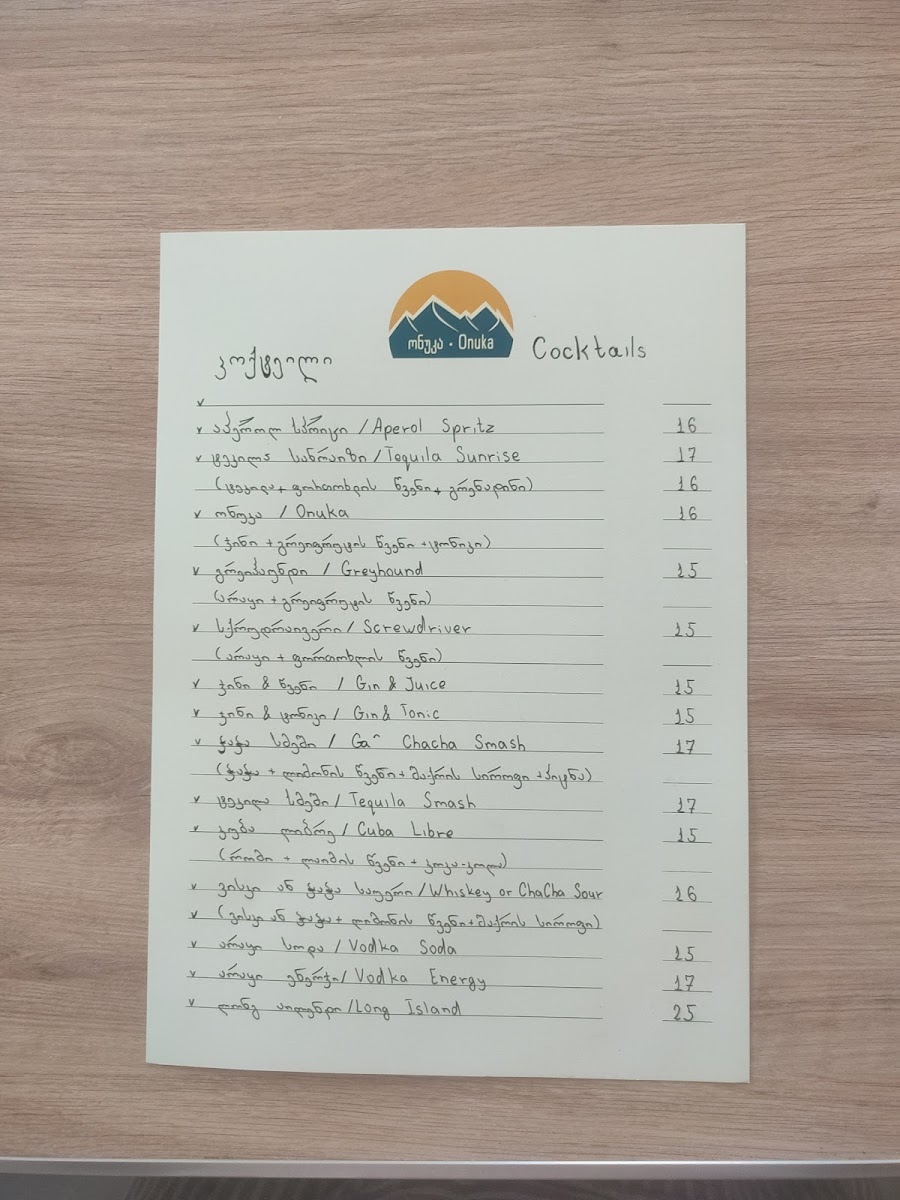 ონუკა · Onuka
კოქტეილი Cocktails
აპეროლ სპრიცი / Aperol Spritz 16
ტეკილა სანრაიზი / Tequila Sunrise 17
(ტეკილა + ფორთოხლის წვენი + გრენადინი) 16
ონუკა / Onuka 16
(ჯინი + გრეიფრუტის წვენი + ტონიკი)
გრეიჰაუნდი / Greyhound 15
(არაყი + გრეიფრუტის წვენი)
სქრუდრაივერი / Screwdriver 15
(არაყი + ფორთოხლის წვენი)
ჯინი & წვენი / Gin & Juice 15
ჯინი & ტონიკი / Gin & Tonic 15
ჭაჭა სმეში / Chacha Smash 17
(ჭაჭა + ლიმონის წვენი + შაქრის სიროფი + პიტნა)
ტეკილა სმეში / Tequila Smash 17
კუბა ლიბრე / Cuba Libre 15
(რომი + ლაიმის წვენი + კოკა-კოლა)
ვისკი ან ჭაჭა საუერი / Whiskey or ChaCha Sour 16
(ვისკი ან ჭაჭა + ლიმონის წვენი + შაქრის სიროფი)
არაყი სოდა / Vodka Soda 15
არაყი ენერჯი / Vodka Energy 17
ლონგ აილენდი / Long Island 25